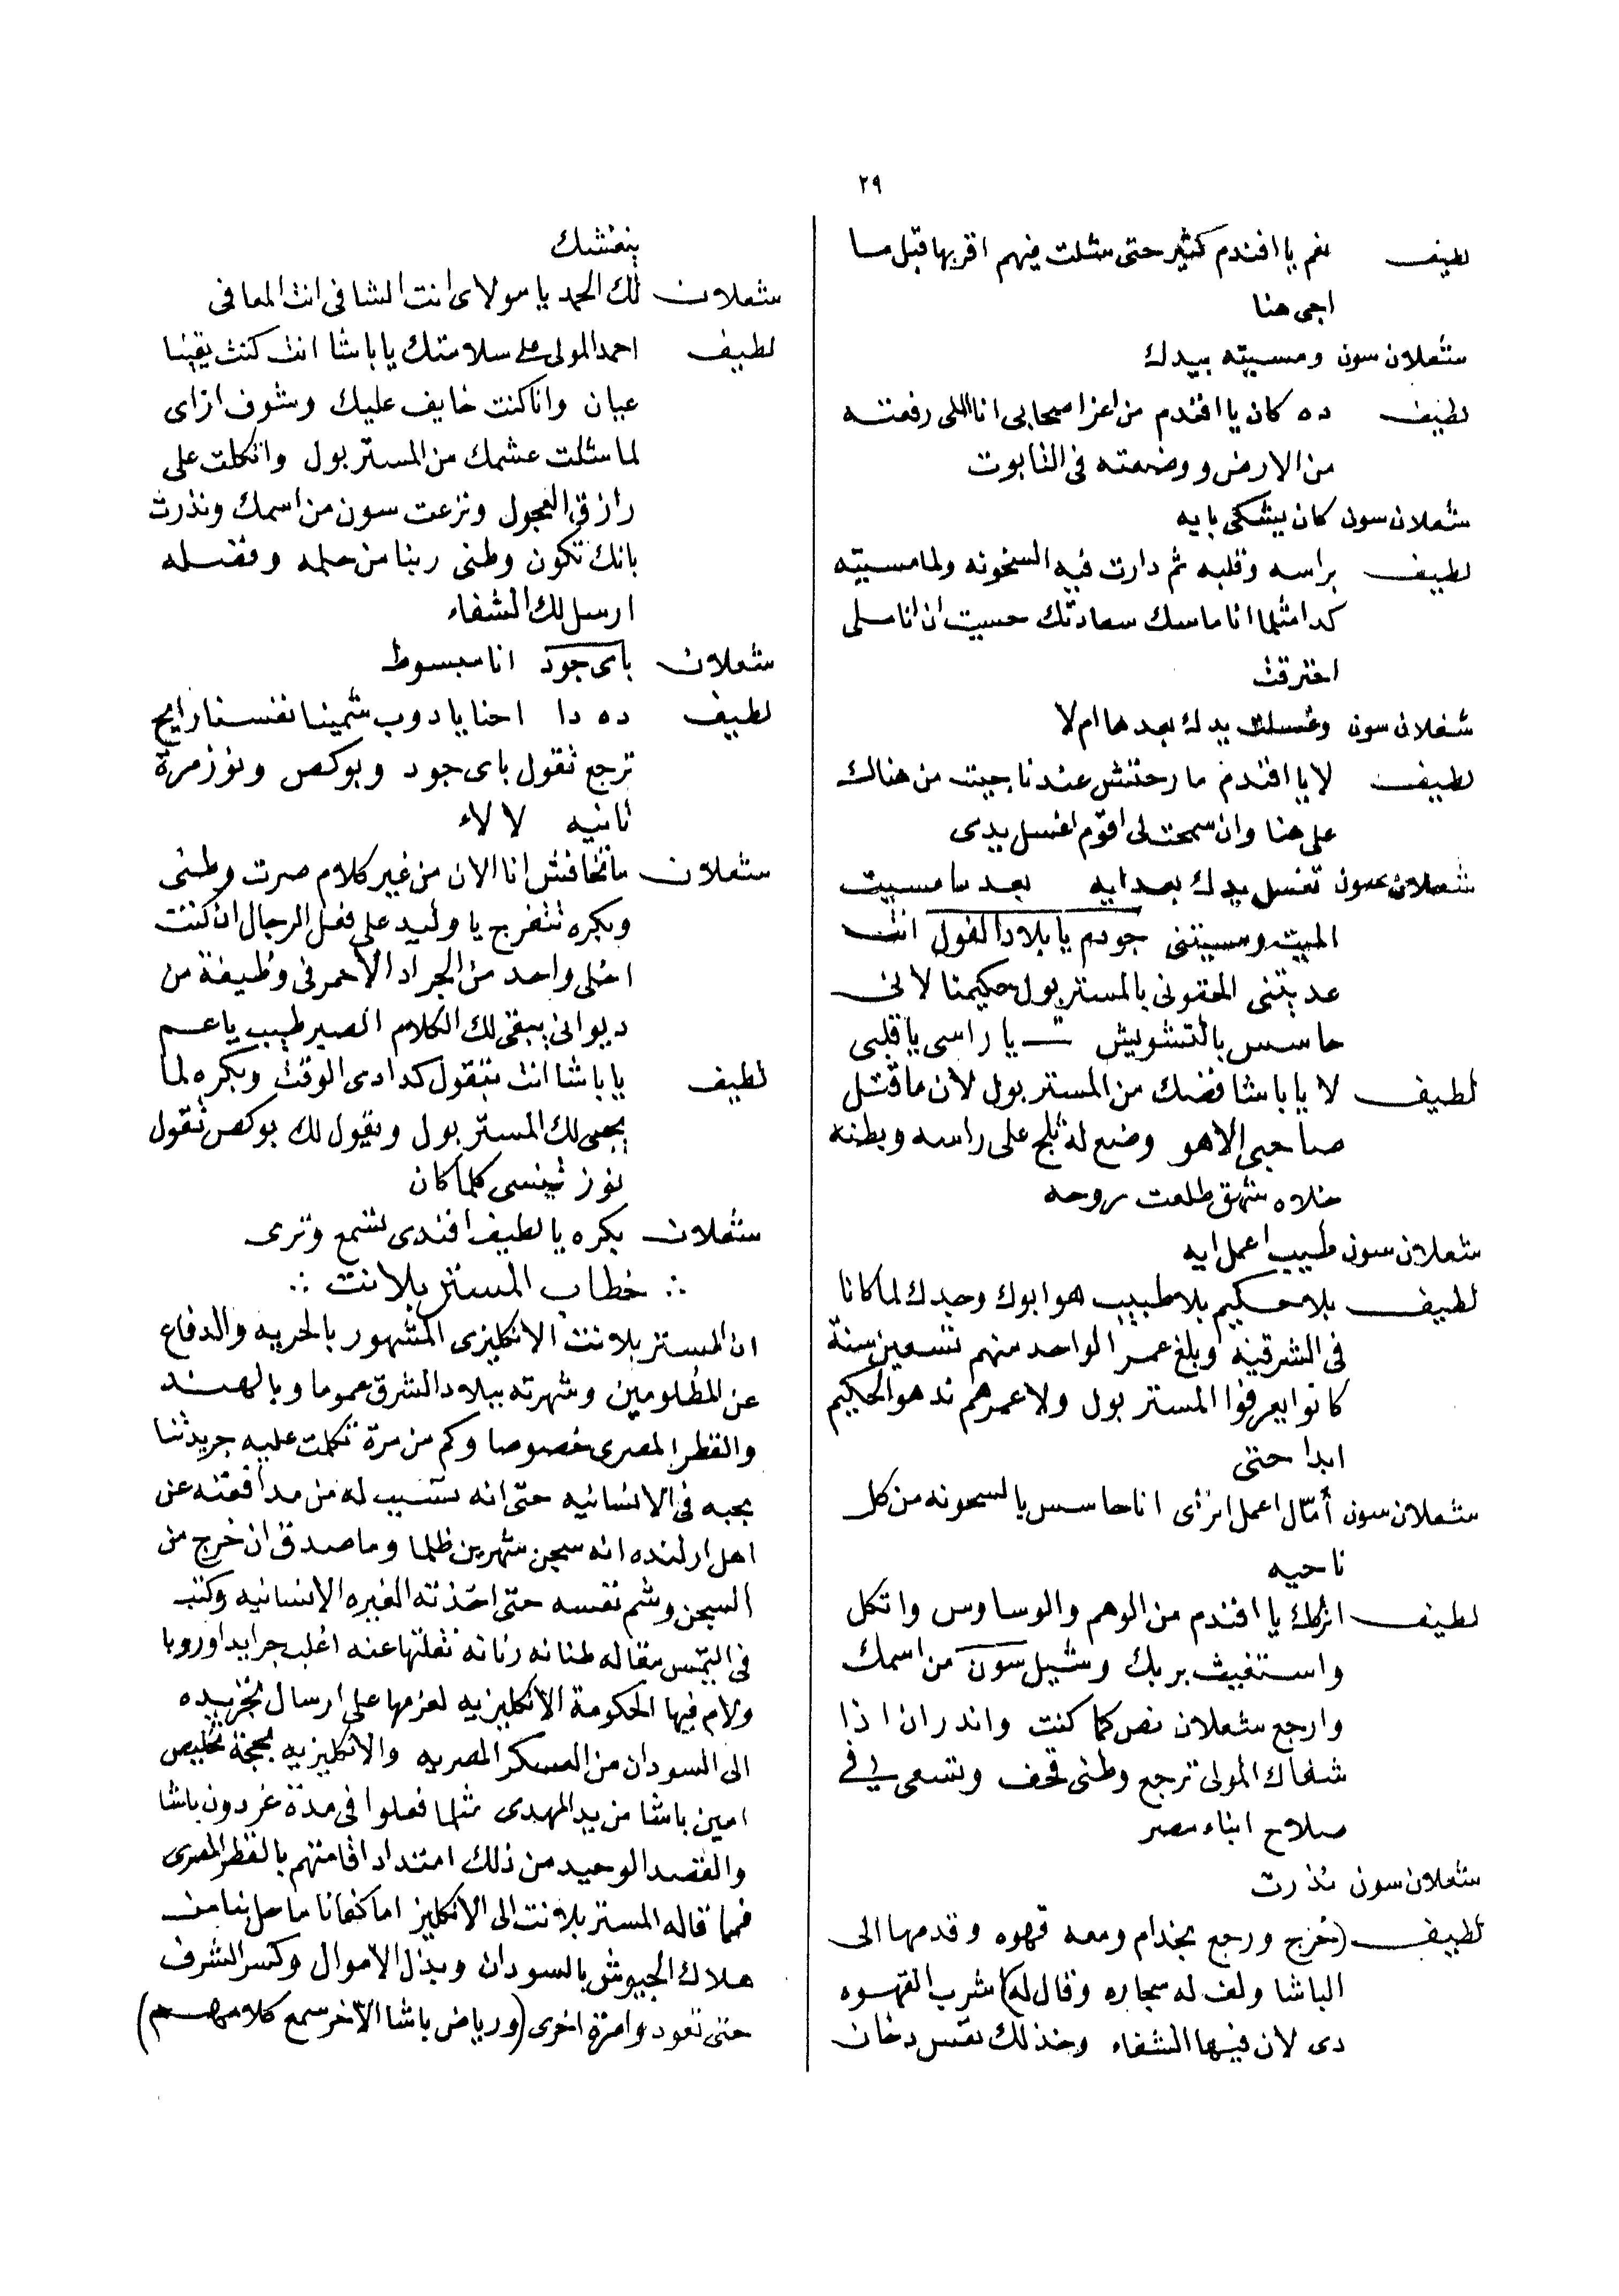 ٢٩
لطيف نعم يا افندم كثير حتى شلت فيهم اقربها قبل ما
اجى هنا
شعلان سون ومسيته بيدك
لطيف ده كان يا افندم من اعز اصحابى انا اللى رفعته
من الارض ووضعته فى التابوت
شعلان سون كان بيشكى بايه
لطيف براسه وقلبه ثم دارت فيه السخونه ولما مسيته
كدا مثلما انا ماسك سعادتك حسيت ان اناملى
احترقت
شعلان سون وغسلت يدك بعدها ام لا
لطيف لا يا افندم ما رحتش عندنا جيت من هناك
على هنا وان سمحت لى اقوم اغسل يدى
شعلان سون تغسل يدك بعد ايه بعد ما مسيت
الميت ومسيتنى جودم يا بلاد الفول انت
عديتنى الحقونى بالمستر بول حكيمنا لانى
حاسس بالتشويش ــ يا راسى يا قلبى
لطيف لا يا باشا فضك من المستر بول لان ما قتل
صاحبى الا هو وضع له ثلج على راسه وبطنه
خلاه شهق طلعت روحه
شعلان سون طيب اعمل ايه
لطيف بلا حكيم بلا طبيب هو ابوك وجدك لما كانا
فى الشرقيه وبلغ عمر الواحد منهم تسعين سنة
كانوا يعرفوا المستر بول ولا عمرهم ندهو الحكيم
ابدا حتى
شعلان سون أمّال اعمل ازى انا حاسس بالسخونه من كل
ناحيه
لطيف اتركك يا افندم من الوهم والوساوس واتكل
واستغيث بربك وشيل سون من اسمك
وارجع شعلان نص كما كنت واندر ان اذا
شفاك المولى ترجع وطنى قحف وتسعى لى فى
صلاح ابناء مصر
شعلان سون نذرت
لطيف (خرج ورجع بخدام ومعه قهوه وقدمها الى
الباشا ولف له سجاره وقال له) اشرب القهوه
دى لان فيها الشفاء وخذ لك نفس دخان
ينعشك
شعلان لك الحمد يا مولاى انت الشافى انت المعافى
لطيف احمد المولى على سلامتك يا باشا انت كنت يقينا
عيان وانا كنت خايف عليك وشوف ازاى
لما شلت عشمك من المستر بول واتكلت على
رازق العجول ونزعت سون من اسمك ونذرت
بانك تكون وطنى ربنا من حلمه وفضله
ارسل لك الشفاء
شعلان باى جود انا مبسوط
لطيف ده دا احنا يا دوب شمينا نفسنا رايح
ترجع تقول باى جود وبوكص ونوز مرة
ثانيه لا لاء
شعلان ماتخافش انا الان من غير كلام صرت وطنى
وبكره تتفرج يا وليد على فعل الرجال ان كنت
اخلى واحد من الجراد الاحمر فى وظيفة من
ديوانى يبقى لك الكلام الصير طيب يا عم
لطيف يا باشا انت بتقول كدا دى الوقت وبكره لما
يجى لك المستر بول ويقول لك بوكص تقول
نوز تينسى كلما كان
شعلان بكره يا لطيف افندى تسمع وترى
∴ خطاب المستر بلانت ∴
ان المستر بلانت الانكليزى المشهور بالحريه والدفاع
عن المظلومين وشهرته ببلاد الشرق عموما وبالهند
والقطر المصرى خصوصا وكم من مرة تكلمت عليه جريدتنا
بحبه فى الانسانيه حتى انه تسبب له من مدافعته عن
اهل ارلنده انه سجن شهرين ظلما وما صدق ان خرج من
السجن وشم نفسه حتى اخذته الغيره الانسانيه وكتب
فى التيمس مقاله طنانه رنانه نقلتها عنه اغلب جرايد اوروبا
ولام فيها الحكومة الانكليزيه لعزمها على ارسال تجزيده
الى السودان من العسكر المصريه والانكليزيه بحجة تخليص
امين باشا من يد المهدى مثلما فعلوا فى مدة غردون باشا
والقصد الوحيد من ذلك امتداد اقامتهم بالقطر المصرى
فمما قاله المستر بلانت الى الانكليز اما كفانا ما حل بنا من
هلاك الجيوش بالسودان وبذل الاموال وكسر الشرف
حتى نعود وامرة اخرى (ورياض باشا الآخر سمع كلامهم)